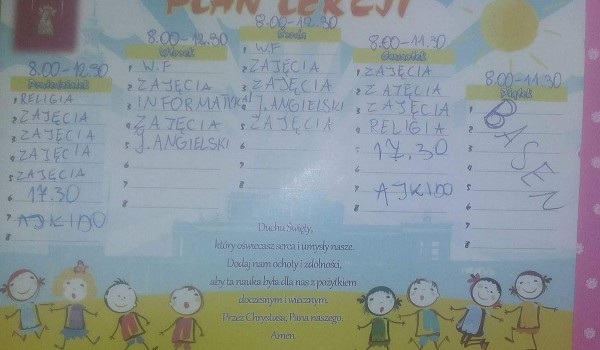 PLAN LEKCJI
8.00-12.30
Poniedziałek
1 RELIGIA
2 ZAJĘCIA
3 ZAJĘCIA
4 ZAJĘCIA
5 ZAJĘCIA
6 17.30
7 AJKIDO
8
8.00-12.30
Wtorek
1 W.F
2 ZAJĘCIA
3 INFORMATYKA
4 ZAJĘCIA
5 J. ANGIELSKI
6
7
8
8.00-12.30
Środa
1 W.F
2 ZAJĘCIA
3 ZAJĘCIA
4 J. ANGIELSKI
5 ZAJĘCIA
6
7
8
8.00-11.30
Czwartek
1 ZAJĘCIA
2 ZAJĘCIA
3 ZAJĘCIA
4 RELIGIA
5 17.30
6
7 AJKIDO
8
8.00-11.30
Piątek
1 BASEN
2
3
4
5
6
7
8
Duchu Święty,
który oświecasz serca i umysły nasze.
Dodaj nam ochoty i zdolności,
aby ta nauka była dla nas z pożytkiem
doczesnym i wiecznym.
Przez Chrystusa, Pana naszego.
Amen.